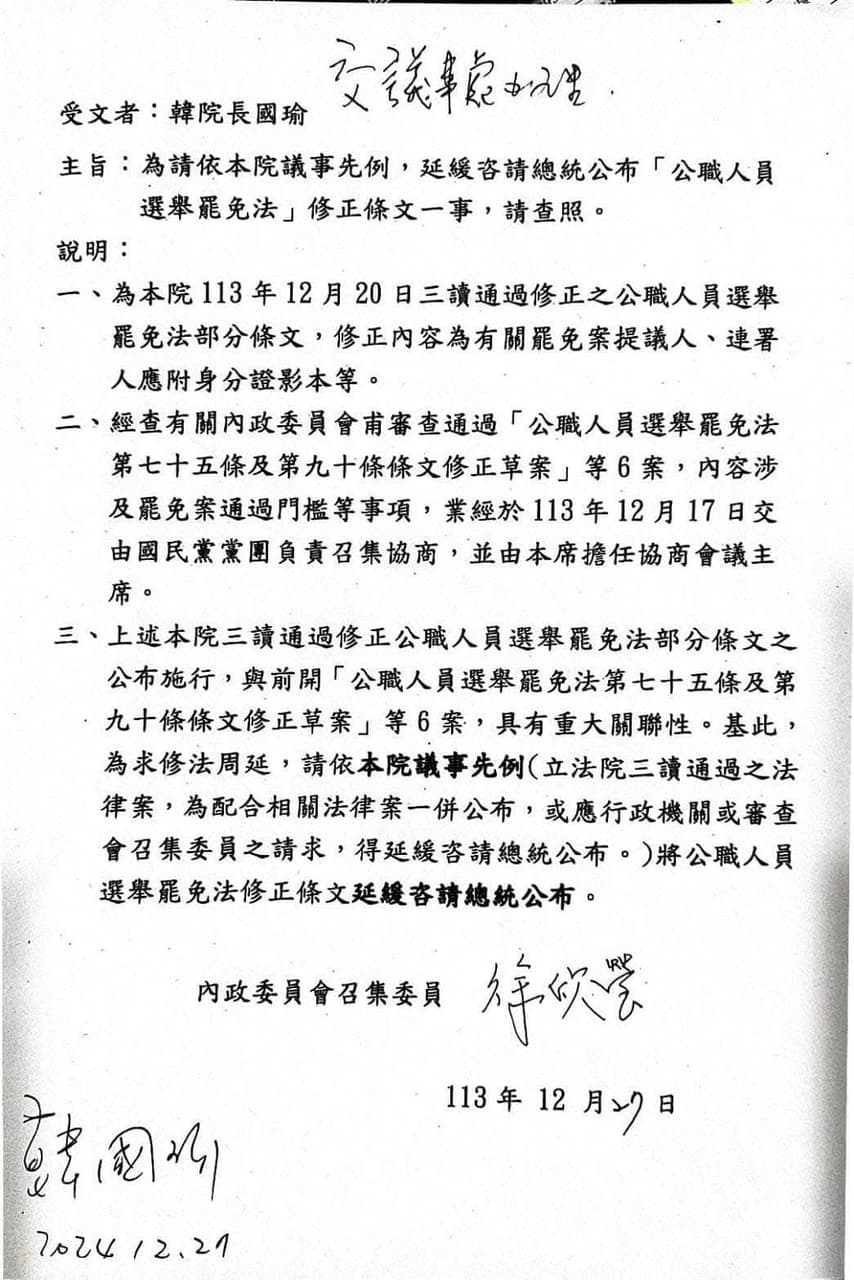 交議事處辦理.
受文者：韓院長國瑜
主旨：為請依本院議事先例，延緩咨請總統公布「公職人員
選舉罷免法」修正條文一事，請查照。
說明：
一、為本院 113 年 12 月 20 日三讀通過修正之公職人員選舉
罷免法部分條文，修正內容為有關罷免案提議人、連署
人應附身分證影本等。
二、經查有關內政委員會甫審查通過「公職人員選舉罷免法
第七十五條及第九十條條文修正草案」等 6 案，內容涉
及罷免案通過門檻等事項，業經於 113 年 12 月 17 日交
由國民黨黨團負責召集協商，並由本席擔任協商會議主
席。
三、上述本院三讀通過修正公職人員選舉罷免法部分條文之
公布施行，與前開「公職人員選舉罷免法第七十五條及第
九十條條文修正草案」等 6 案，具有重大關聯性。基此，
為求修法周延，請依本院議事先例(立法院三讀通過之法
律案，為配合相關法律案一併公布，或應行政機關或審查
會召集委員之請求，得延緩咨請總統公布。)將公職人員
選舉罷免法修正條文延緩咨請總統公布。
內政委員會召集委員 徐欣瑩
113 年 12 月 27 日
韓國瑜
2024.12.27